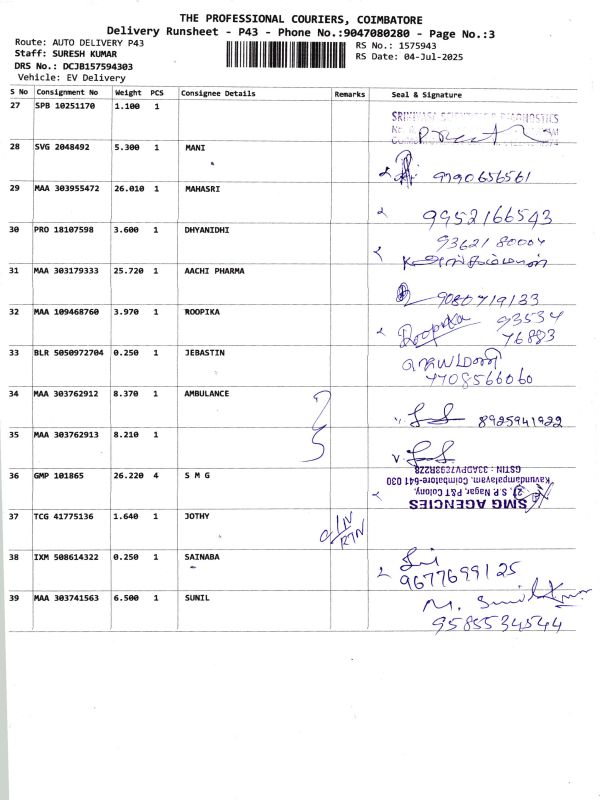 THE PROFESSIONAL COURIERS, COIMBATORE
Delivery Runsheet - P43 - Phone No.:9047080280 - Page No.:3
Route: AUTO DELIVERY P43
Staff: SURESH KUMAR
DRS No.: DCJB157594303
Vehicle: EV Delivery
RS No.: 1575943
RS Date: 04-Jul-2025
S No Consignment No Weight PCS Consignee Details Remarks Seal & Signature
27 SPB 10251170 1.100 1
28 SVG 2048492 5.300 1 MANI 9790656561
29 MAA 303955472 26.010 1 MAHASRI 9952166543
30 PRO 18107598 3.600 1 DHYANIDHI
31 MAA 303179333 25.720 1 AACHI PHARMA 9080719133
32 MAA 109468760 3.970 1 ROOPIKA Roopika 93534
76883
33 BLR 5050972704 0.250 1 JEBASTIN ஜெயமணி
7708566060
34 MAA 303762912 8.370 1 AMBULANCE 8925941922
35 MAA 303762913 8.210 1
36 GMP 101865 26.220 4 S M G
SMG AGENCIES
S.P. Nagar, P&T Colony,
Kavundampalayam, Coimbatore-641 030
37 TCG 41775136 1.640 1 JOTHY RTN
38 IXM 508614322 0.250 1 SAINABA
9677699125
39 MAA 303741563 6.500 1 SUNIL M. Sunil Kumar
9585534544